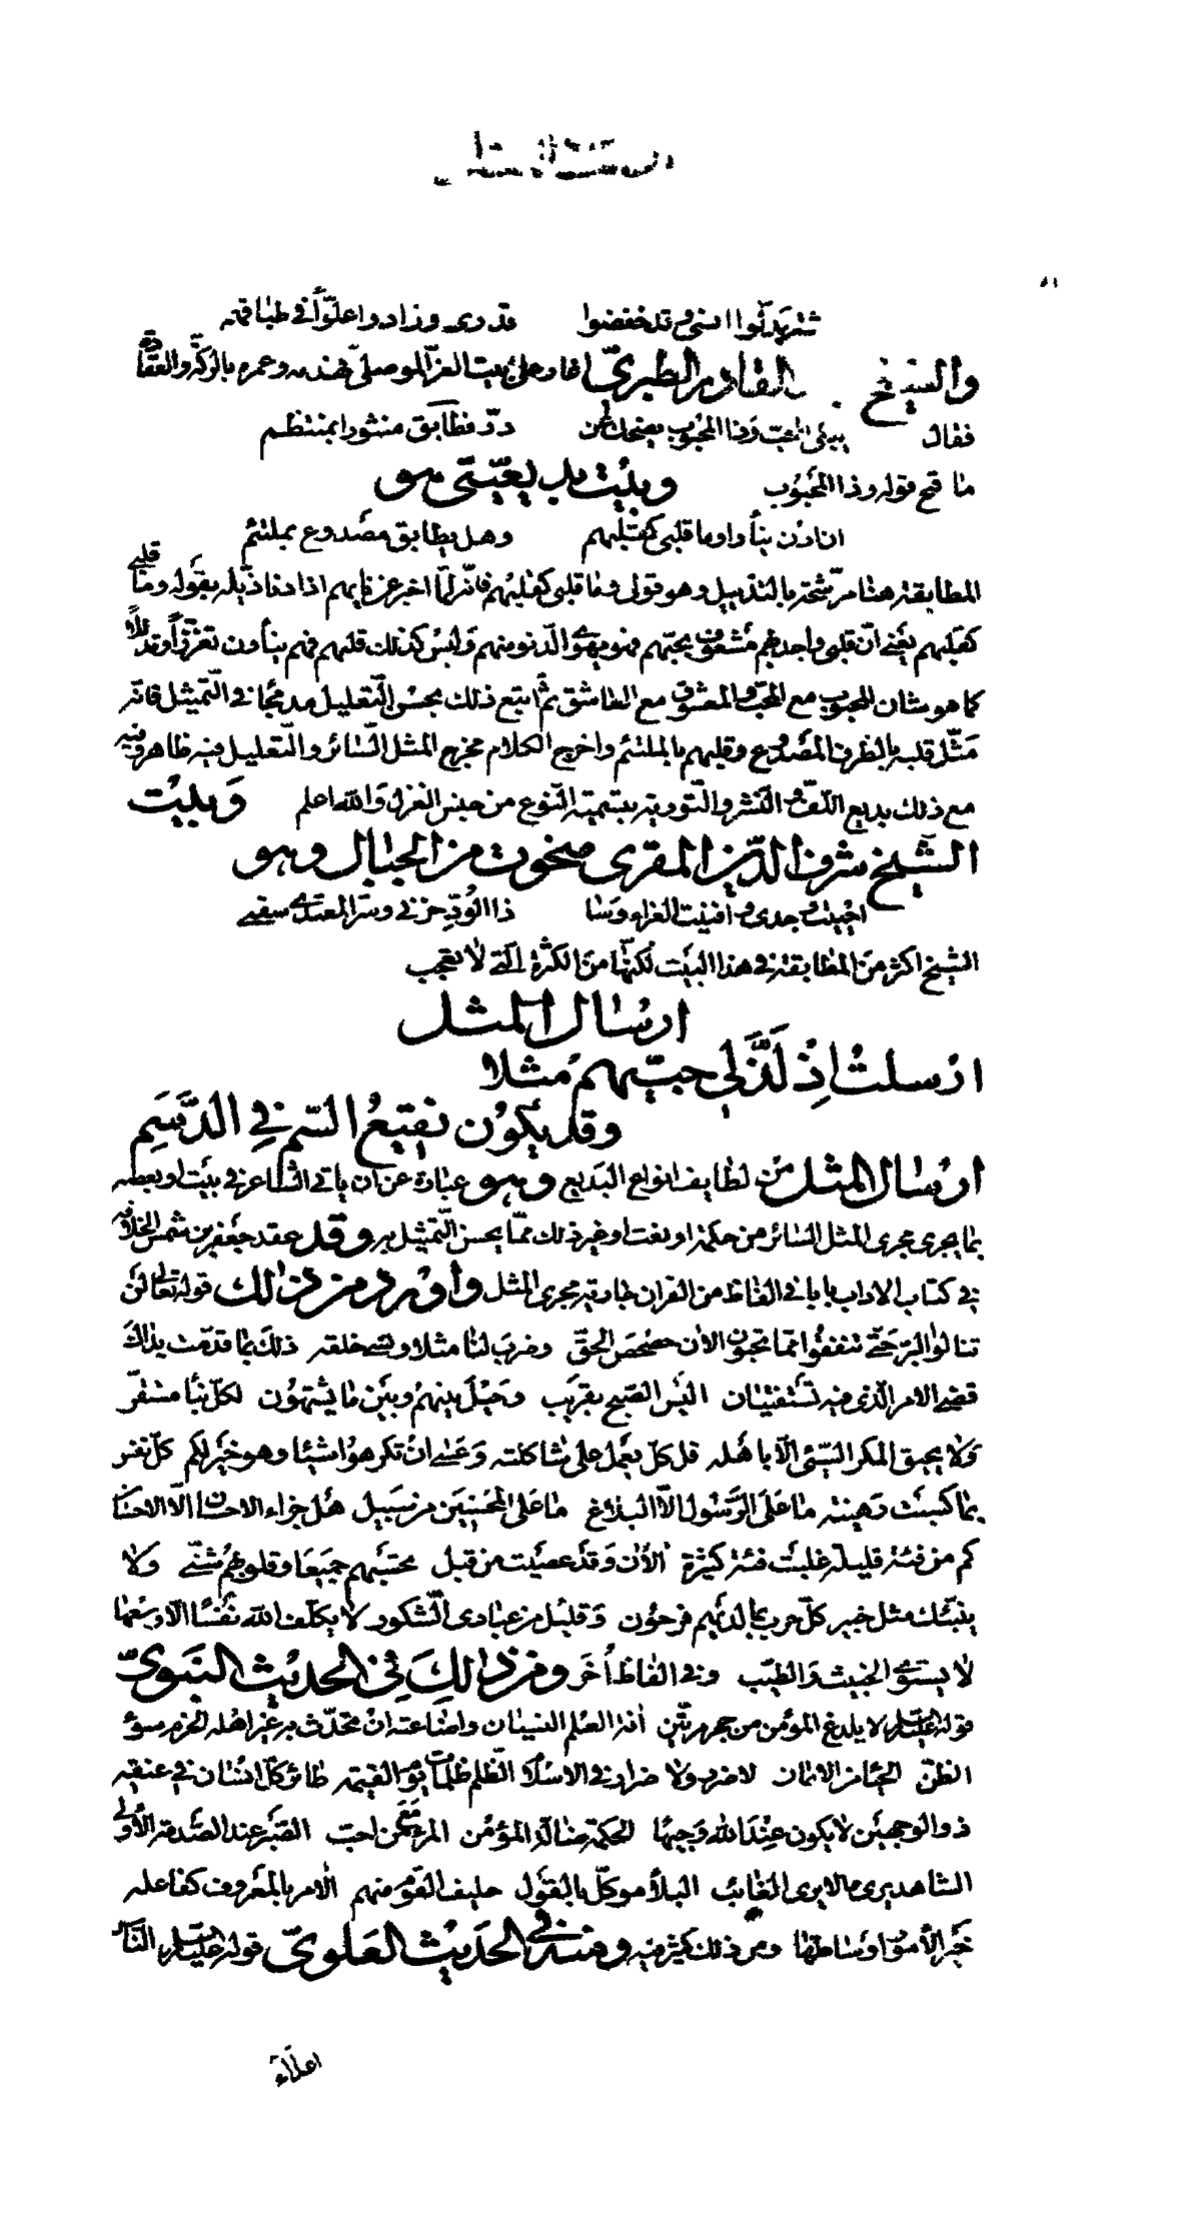 ارسال المثل
قد خفضوا قدري وزادوا علوّا في طباقهم
والشيخ عبد القادر الطبري اغار على بيت العز الموصلي فهدمه وعمره بالركة والعقادة
فقال يبكي المحب وذا المحبوب يضحك عن درّ فطابق منثورا بمنتظم
ما قبح قوله وذا المحبوب وبيت بديعيتي هو
ان ادن ينأوا وما قلبي كقلبهم وهل يطابق مصدوع بملتئم
المطابقة هنا مرشحة بالتذييل وهو قولي وما قلبي كقلبهم فانه لما اخبر عن نأيهم اذا دنا ذيله بقوله وما قلبي
كقلبهم يعني انّ قلبي واجد بهم مشغوف بحبهم فهو يهوى الدنو منهم وليس كذلك قلبهم فهم ينأون تعززا وتدللا
كما هو شان المحبوب مع المحب والمعشوق مع العاشق ثم اتبع ذلك بحسن التعليل مدمجا في التمثيل فانه
مثّل قلبه بالظرف المصدوع وقلبهم بالملتئم واخرج الكلام مخرج المثل السائر والتعليل فيه ظاهر وفيه
مع ذلك بديع اللف والنشر والتورية بتسمية النوع من جنس الغزل والله اعلم وبيت
الشيخ شرف الدين المقري منحوت من الجبال وهو
احييت وجدي وافنيت العزاء وسا ذا الود حزني وسر المعتدي سقمي
الشيخ اكثر من المطابقة في هذا البيت لكنها من الكثرة التي لا تعجب
ارسال المثل
ارسلت اذ لذّ لي حبيهم مثلا
وقد يكون نقيع السم في الدسم
ارسال المثل من لطايف انواع البديع وهو عبارة عن ان ياتي الشاعر في بيت او بعضه
بما يجري مجرى المثل السائر من حكمة او نعت او غير ذلك مما يحسن التمثيل به وقد عقد جعفر بن شمس الخلافة
في كتاب الاداب بابا في الفاظ من القران جارية مجرى المثل واورد من ذلك قوله تعالى لن
تنالوا البر حتى تنفقوا مما تحبون الان حصحص الحق وضرب لنا مثلا ونسي خلقه ذلك بما قدمت يداك
قضي الامر الذي فيه تستفتيان اليس الصبح بقريب وحيل بينهم وبين ما يشتهون لكل نبا مستقر
ولا يحيق المكر السيئ الا باهله قل كل يعمل على شاكلته وعسى ان تكرهوا شيئا وهو خير لكم كل نفس
بما كسبت رهينة ما على الرسول الا البلاغ ما على المحسنين من سبيل هل جزاء الاحسان الا الاحسان
كم من فئة قليلة غلبت فئة كثيرة الان وقد عصيت من قبل تحسبهم جميعا وقلوبهم شتى ولا
ينبئك مثل خبير كل حزب بما لديهم فرحون وقليل من عبادي الشكور لا يكلف الله نفسا الا وسعها
لا يستوي الخبيث والطيب وفي الفاظ أخر ومن ذلك في الحديث النبوي
قوله عليه السلام لا يلدغ المؤمن من جحر مرتين افة العلم النسيان واضاعته ان تحدث به غير اهله الحزم سوء
الظن الحياء من الايمان لا ضرر ولا ضرار في الاسلام الظلم ظلمات يوم القيمة طائر كل انسان في عنقه
ذو الوجهين لا يكون عند الله وجيها الحكمة ضالة المؤمن المرء مع من احب الصبر عند الصدمة الأولى
الشاهد يرى ما لا يرى الغائب البلاء موكل بالقول حليف القوم منهم الامر بالمعروف كفاعله
خير الأمور اوساطها ومن ذلك كثير فيه ومنه في الحديث العلوي قوله عليه السلام الناس
اعداء